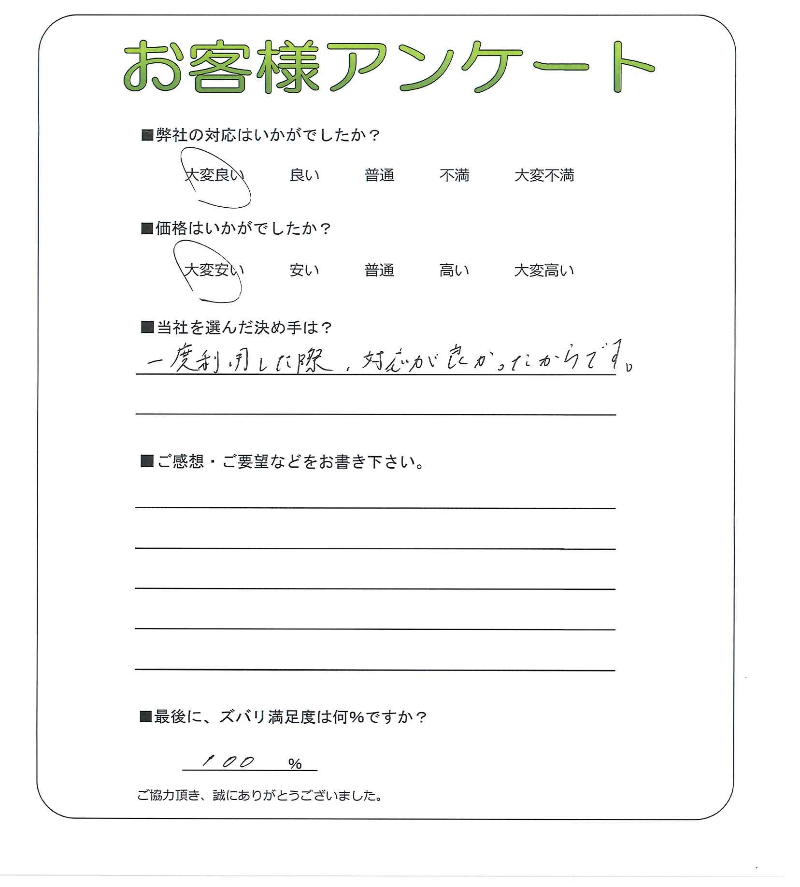 お客様アンケート
■弊社の対応はいかがでしたか？
大変良い 良い 普通 不満 大変不満
■価格はいかがでしたか？
大変安い 安い 普通 高い 大変高い
■当社を選んだ決め手は？
一度利用した際、対応が良かったからです。
■ご感想・ご要望などをお書き下さい。
■最後に、ズバリ満足度は何%ですか？
100 %
ご協力頂き、誠にありがとうございました。